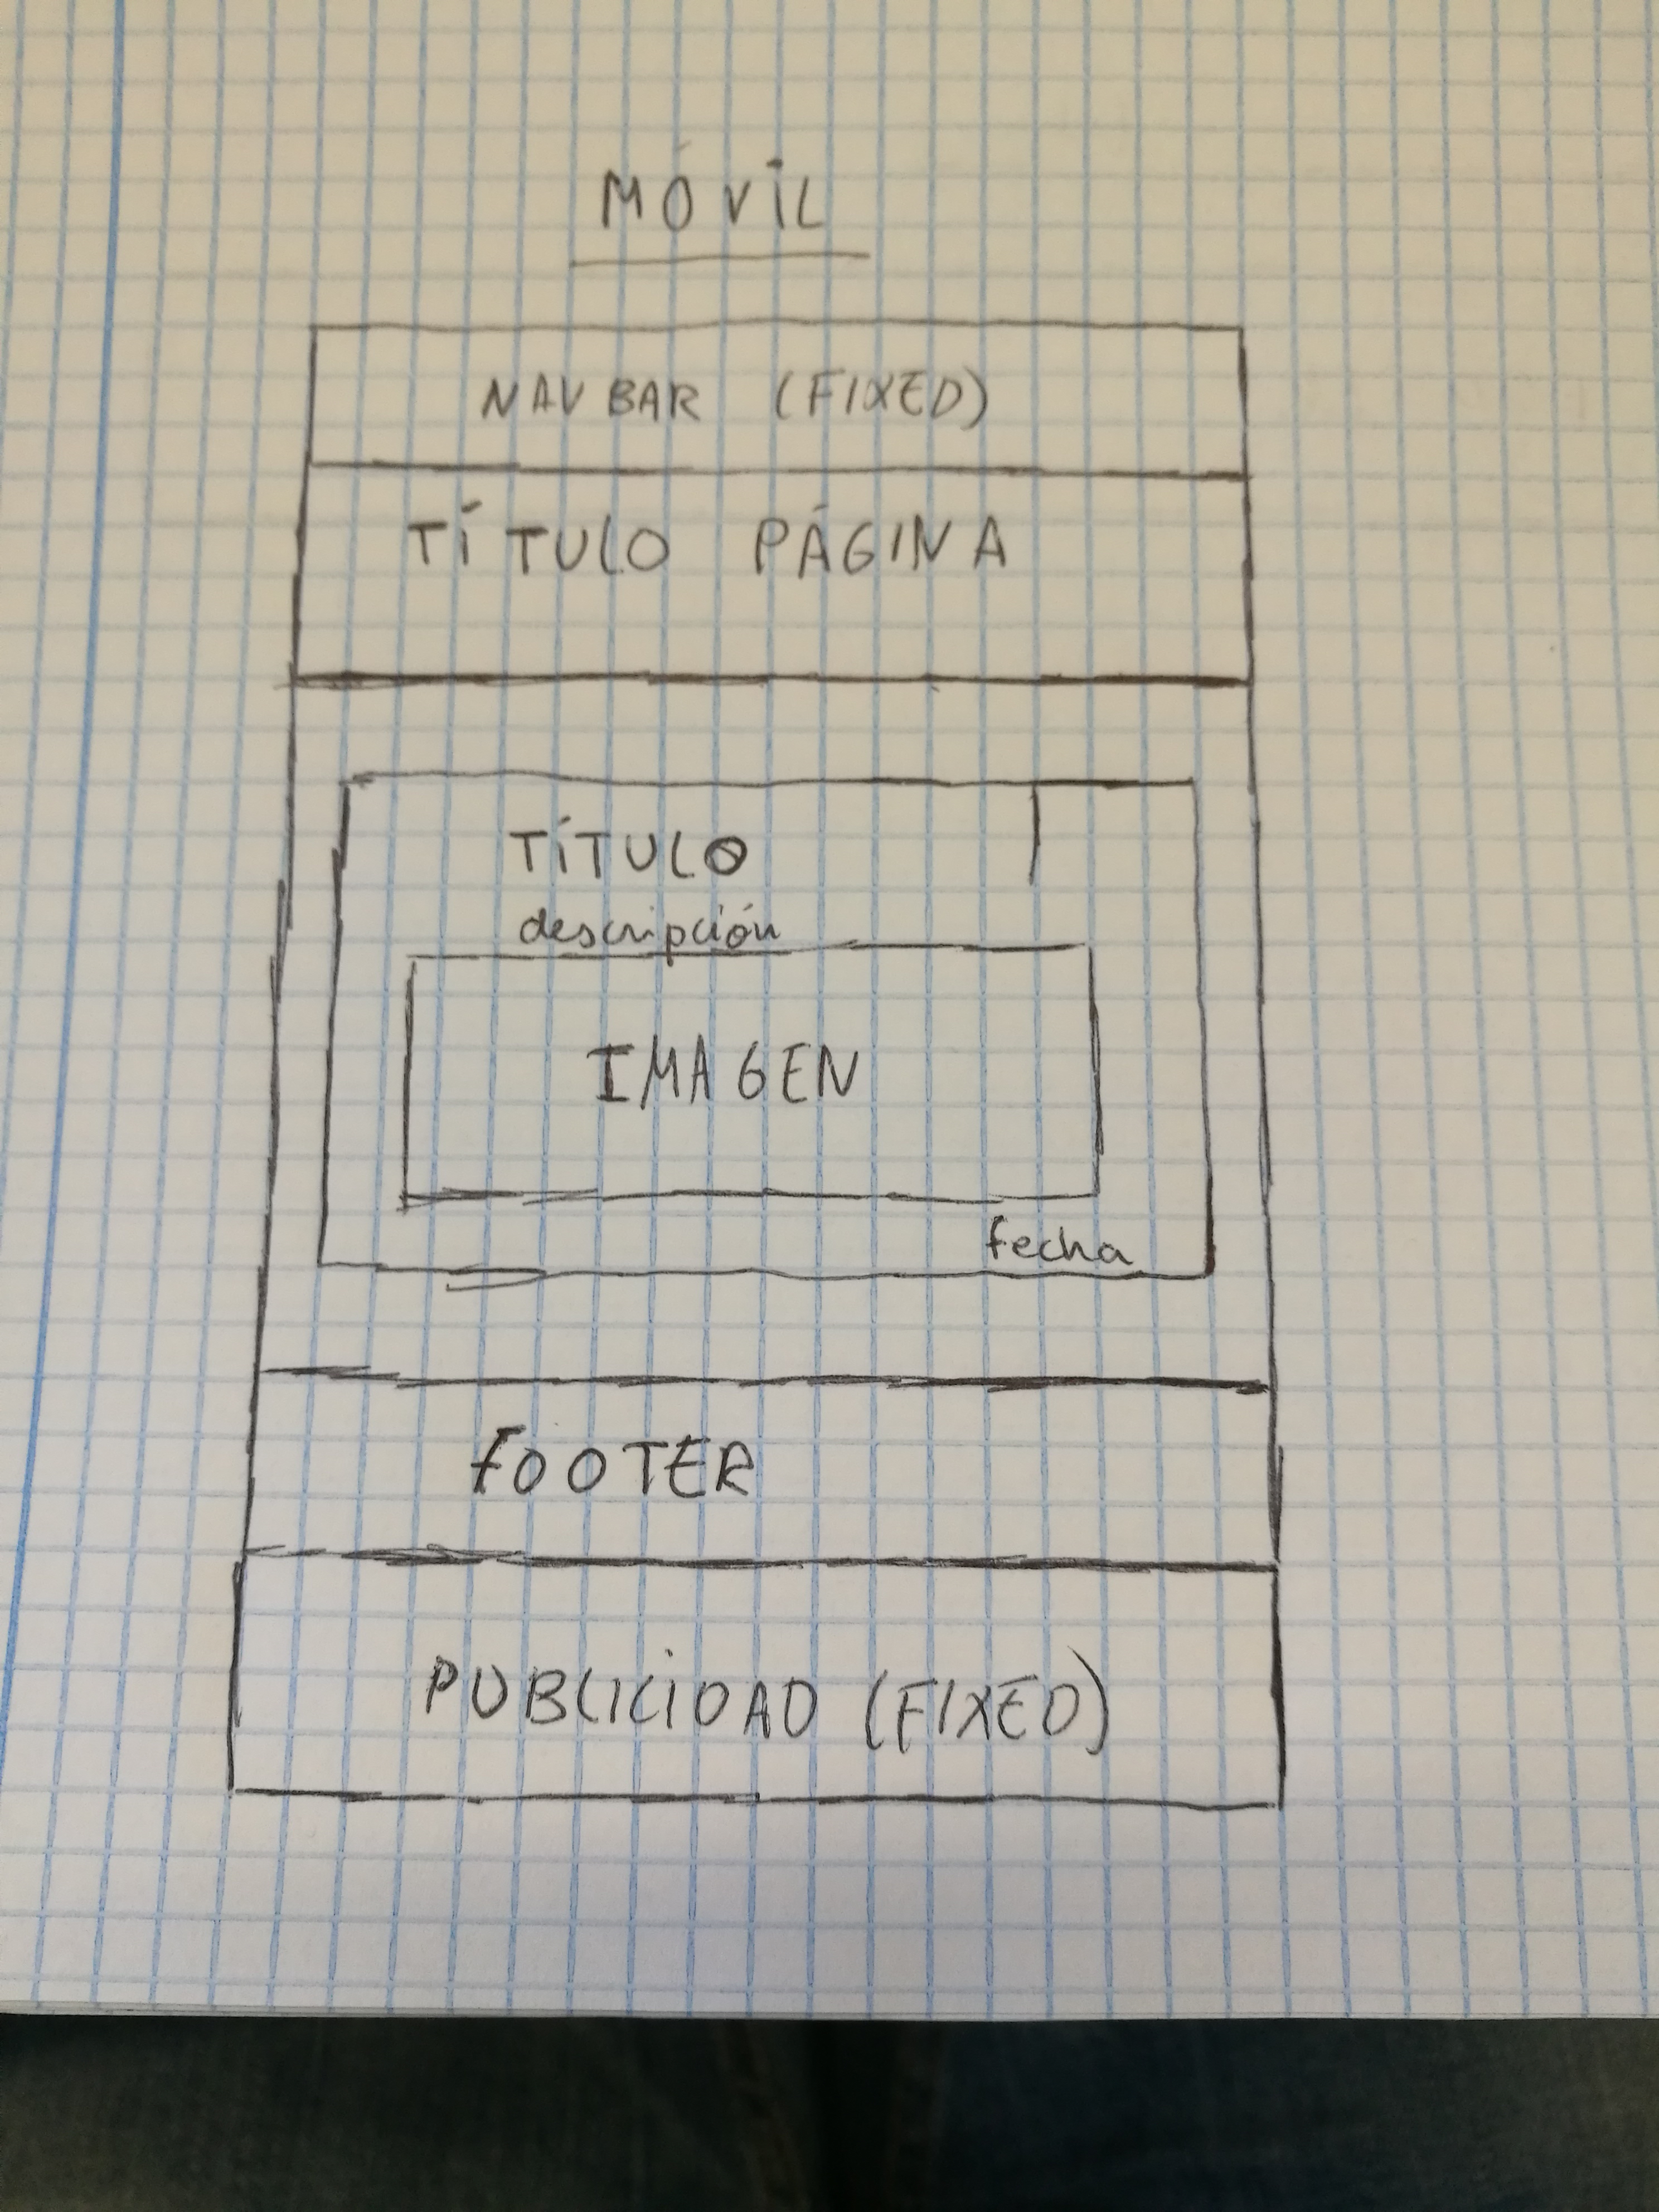 MÓVIL
NAVBAR (FIXED)
TÍTULO PÁGINA
TÍTULO
descripción
IMAGEN
fecha
FOOTER
PUBLICIDAD (FIXED)